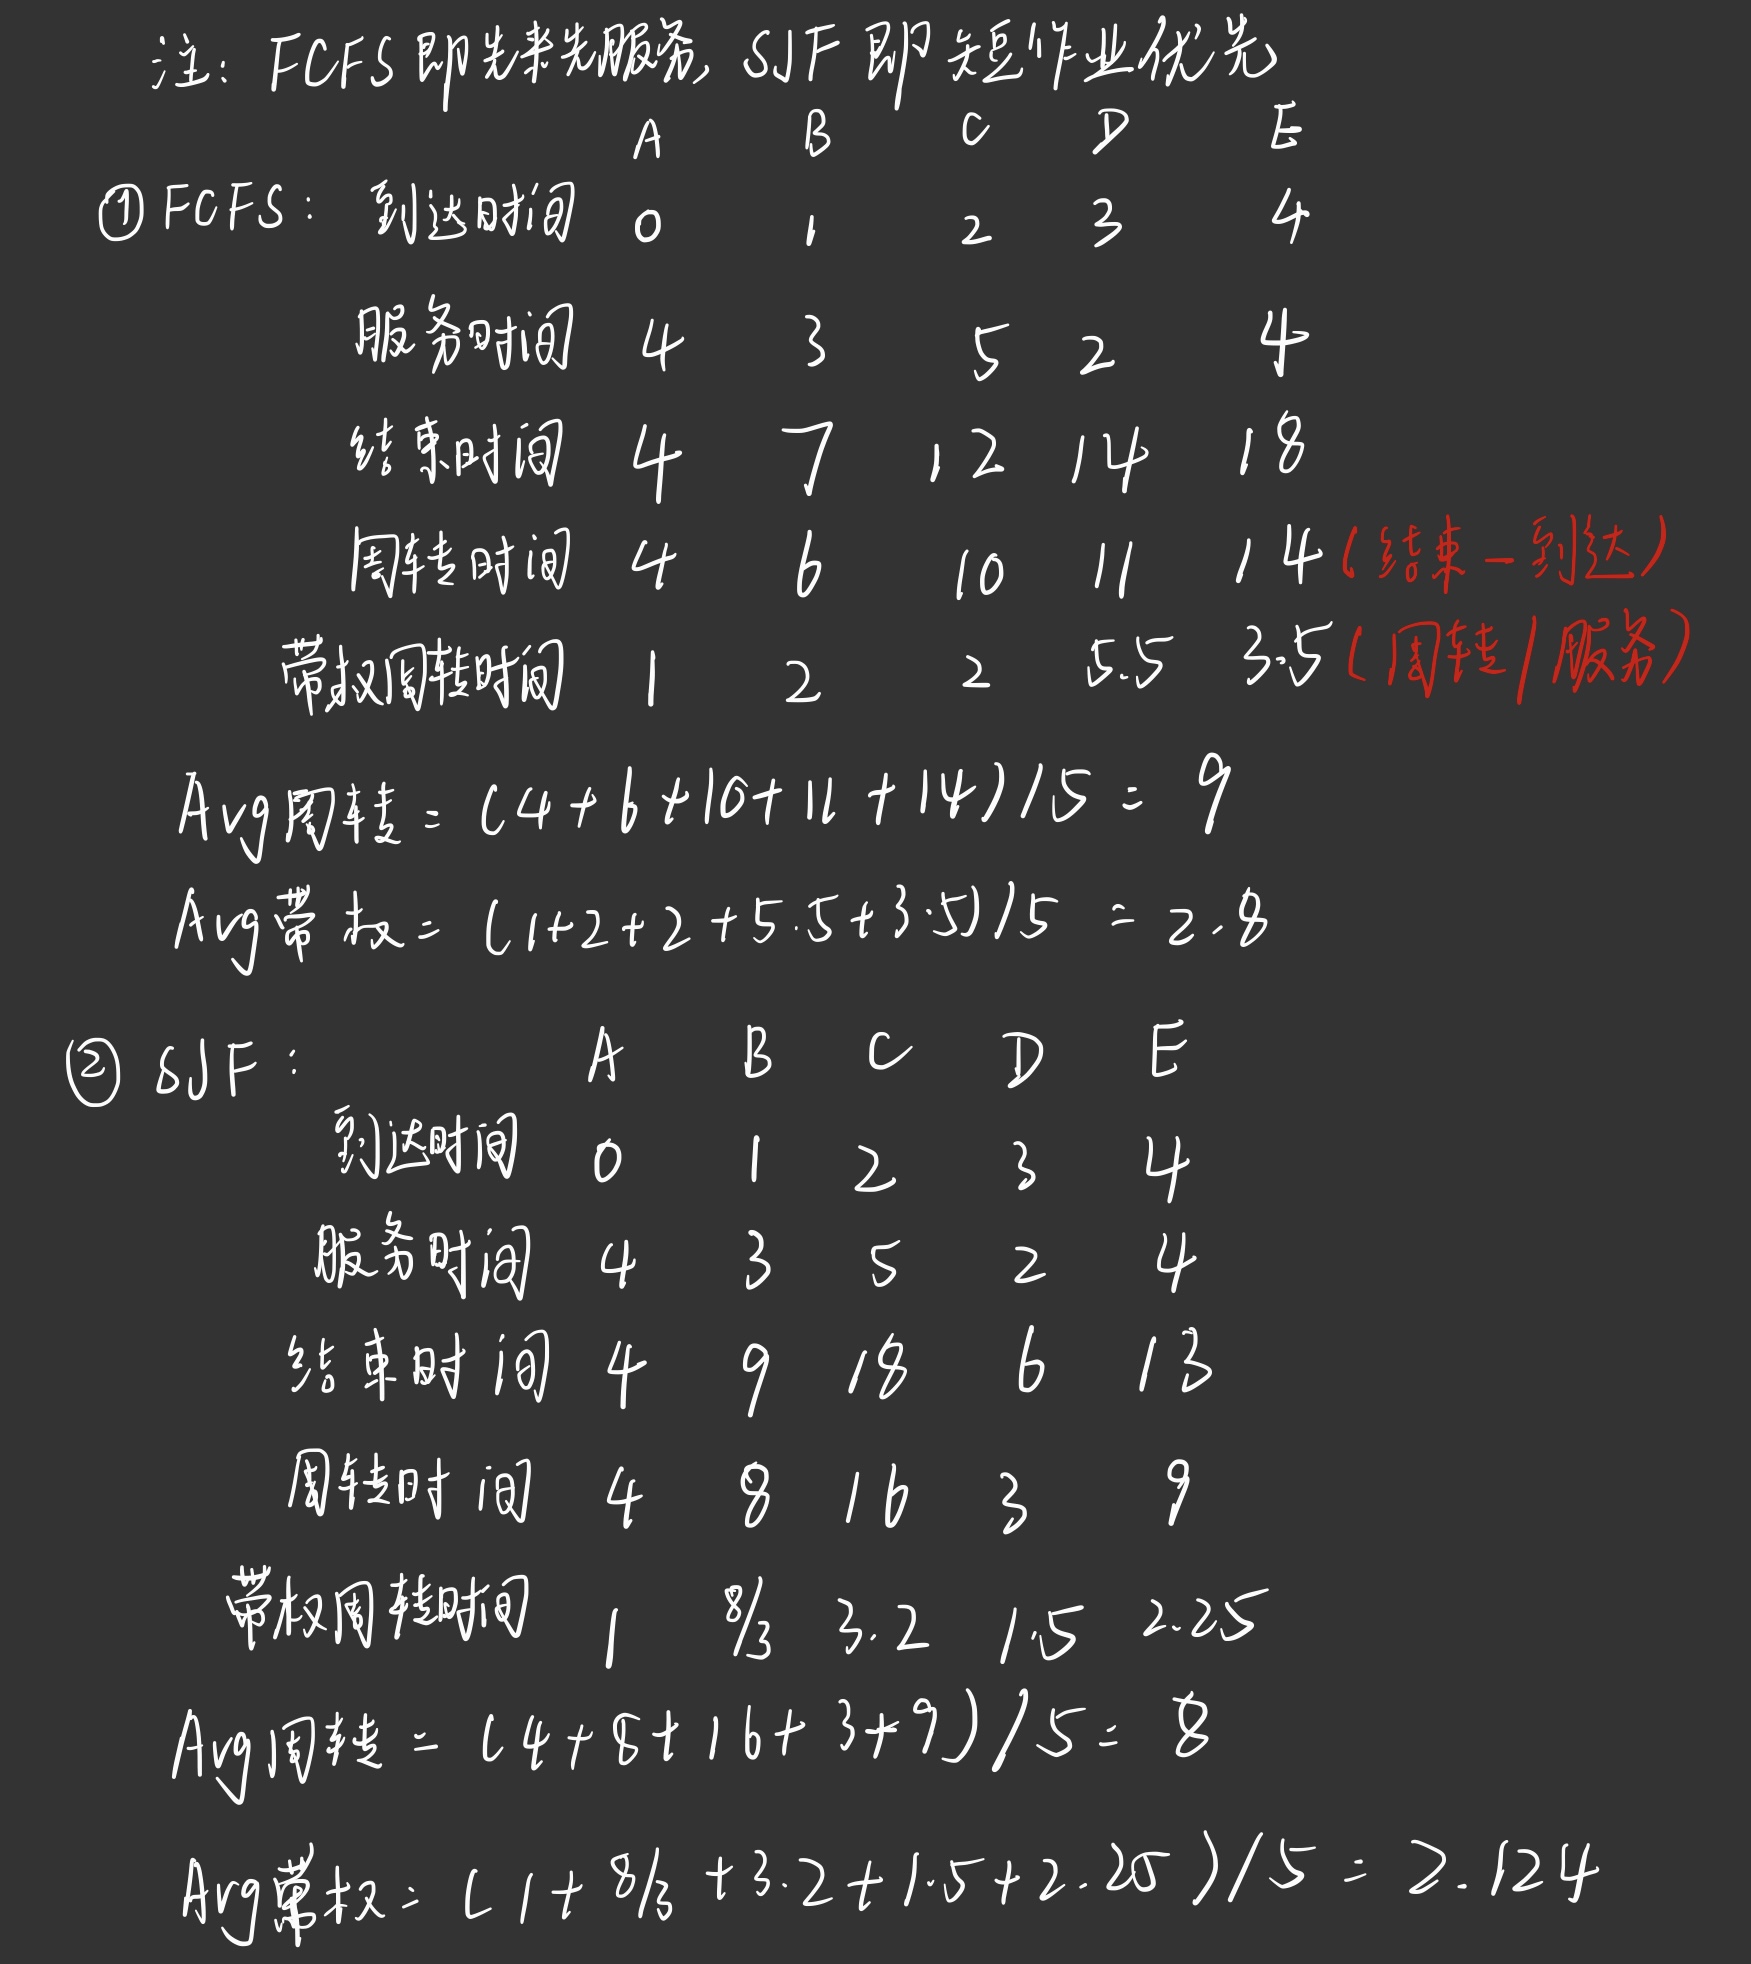 注: FCFS即先来先服务, SJF即短作业优先
A B C D E
①FCFS: 到达时间 0 1 2 3 4
服务时间 4 3 5 2 4
结束时间 4 7 12 14 18
周转时间 4 6 10 11 14 (结束-到达)
带权周转时间 1 2 2 5.5 3.5 (周转/服务)
Avg周转=(4+6+10+11+14)/5=9
Avg带权=(1+2+2+5.5+3.5)/5=2.8
②SJF: A B C D E
到达时间 0 1 2 3 4
服务时间 4 3 5 2 4
结束时间 4 9 18 6 13
周转时间 4 8 16 3 9
带权周转时间 1 8/3 3.2 1.5 2.25
Avg周转=(4+8+16+3+9)/5=8
Avg带权=(1+8/3+3.2+1.5+2.25)/5=2.124